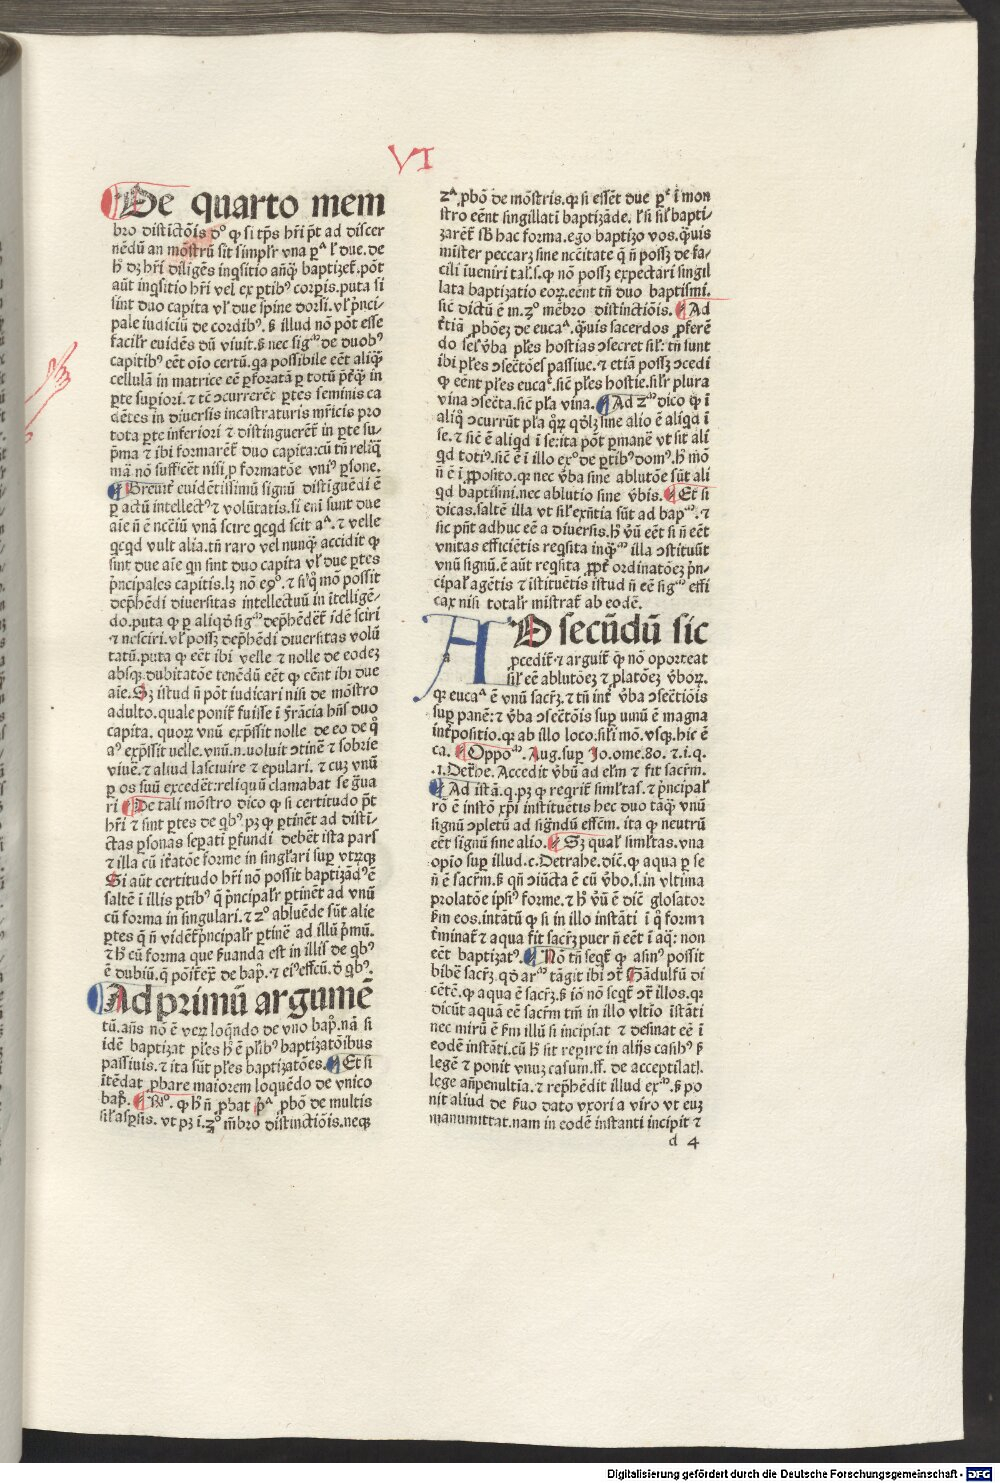 VI
De quarto mem
bro distictōis d° ꝙ si tp̄s hr̄i pt̄ ad discer
nēdū an mōstrū sit simplr̄ vna pᵃ vł due. de
hͦ dꝫ hr̄i diligēs inqsitio añqͥ baptizet̄. pōt
aūt inqsitio hr̄i vel ex ptibꝰ corpis. puta si
sint duo capita vł due spine dorsi. vł pͥnci-
pale iudiciū de cordibꝰ. ꝫ illud nō pōt esse
facilr̄ euidēs dū viuit. ꝫ nec sigᵐ de duobꝰ
capitibꝰ eēt oīo certū. qa possibile eēt aliqͣ
cellulā in matrice eē pforatā p totū
pte supiori. ⁊ tē ↄcurrerēt ptes seminis ca
dētes in diuersis incastraturis mr̄icis pro
tota pte inferiori ⁊ distinguerēt̄ in pte su-
pͥma ⁊ ibi formarēt̄ duo capita: cū tn̄ reliqͣ
mā nō sufficēt nisi p formatōe vniꝰ psone.
Breuit̄ euidētissimū signū distīguēdi ē
p actū intellectꝰ ⁊ volūtatis. si eni sunt due
aīe n̄ ē nccīū vnā scire qcqd scit aᵃ. ⁊ velle
qcqd vult alia. tn̄ raro vel nunqͣ accidit ꝙ
sint due aīe qn sint duo capita vł due ptes
pͥncipales capitis. lꝫ nō e9°. ⁊ si qͦ mō possit
dep̄hēdi diuersitas intellectuū in ītelligē-
do. puta ꝙ p aliqd̄ sigᵐ dep̄hēdēt̄ idē sciri
⁊ nesciri. vł possꝫ dep̄hēdi diuersitas volū
tatū. puta ꝙ eēt ibi velle ⁊ nolle de eodeꝫ
absqꝫ dubitatōe tenēdū eēt ꝙ cēnt ibi due
aīe. Sꝫ istud n̄ pōt iudicari nisi de mōstro
adulto. quale ponit̄ fuisse ī frācia hn̄s duo
capita. quoꝝ vnū exp̄ssit nolle de eo de qͦ
aᵒ exp̄ssit velle. vnū. n. uoluit ↄtinē ⁊ sobrie
viuē. ⁊ aliud lasciuire ⁊ epulari. ⁊ cuꝫ vnū
p os suū excedēt: reliquū clamabat se ḡua
ri De tali mōstro dico ꝙ si certitudo pt̄
hr̄i ⁊ sint ptes de qbꝰ. pꝫ ꝙ ptinēt ad disti-
ctas psonas sepati pfundi debēt ista pars
⁊ illa cū it̄atōe forme in singlari sup vtrꝫqꝫ
Si aūt certitudo hr̄i nō possit baptizādꝰ ē
saltē ī illis ptibꝰ q pͥncipalr̄ ptinēt ad vnū
cū forma in singulari. ⁊ zᵒ abluēde sūt alie
ptes q n̄ vidēt̄ pͥncipalr̄ ptinē ad illū pͥmū.
⁊ hͦ cū forma que ꝫuanda est in illis de qbꝰ
ē dubiū. q pōit̄ ex̄ de bap̄. ⁊ eiꝰ effcū. d̄ qbꝰ.
Ad primū argumē
tū. an̄s nō ē verꝝ loqndo de vno bap̄. nā si
idē baptizat pl̄es hͦ ē pl̄ibꝰ baptizatōibus
passiuis. ⁊ ita sūt pl̄es baptizatōes. Et si
itēdat pbare maiorem loquēdo de vnico
bap̄. Rͦ. ꝙ hͦ n̄ pbat pᵃ pbō de multis
sil̄ aspsis. vt pꝫ ī. zᵒ m̄bro distinctiōis. neqꝫ
zᵃ pbō de mōstris. ꝙ si essēt due pᵉ ī mon
stro eēnt singillatī baptizāde. ł si sil̄ bapti-
zarēt̄ sb̄ hac forma. ego baptizo vos. qͣuis
mīster peccarꝫ sine nccītate q n̄ possꝫ de fa-
cili iueniri tal̄. s. q nō possꝫ expectari singil
lata baptizatio eoꝝ. eēnt tn̄ duo baptismi.
sic dictū ē in. zᵒ mēbro distinctiōis. Ad
t̄tiā pbōeꝫ de eucaᵃ. qͣuis sacerdos pferē
do sel̄ vba pl̄es hostias ↄsecret sil̄: tn̄ sunt
ibi pl̄es ↄsectōes passiue. ⁊ etiā possꝫ ↄcedi
ꝙ eēnt pl̄es eucaᵉ. sic pl̄es hostie. sil̄r plura
vina ↄsecta. sic pl̄a vina. Ad zᵐ dico ꝙ ī
aliqͦ ↄcurrūt pl̄a qꝝ qdlꝫ sine alio ē aliqd ī
se. ⁊ sic ē aliqd ī se: ita pōt pmanē vt sit ali
qd totiꝰ. sic ē ī illo exᵒ de ptibꝰ domꝰ. hͦ mō
n̄ ē ī pposito. qꝛ nec vba sine ablutōe sūt ali
qd baptismi. nec ablutio sine vbis. Et si
dicas. saltē illa vt sil̄ exn̄tia sūt ad bapᵐ. ⁊
sic pn̄t adhuc eē a diuersis. hͦ vū eēt si n̄ eēt
vnitas efficiētis reqsita inqͣᵐ illa ↄstituūt
vnū signū. ē aūt reqsita ppt̄ ordinatōeꝫ pͥn-
cipal̄ agētis ⁊ istituētis istud n̄ eē sigᵐ effi
cax nisi totalr̄ mīstrat̄ ab eodē.
AD secūdū sic
a pcedit̄. ⁊ arguit̄ ꝙ nō oporteat
sil̄ eē ablutōeꝫ ⁊ platōeꝫ vboꝝ.
qꝛ eucaᵃ ē vnū sacrꝫ. ⁊ tn̄ int̄ vba ↄsectiōis
sup panē: ⁊ vba ↄsectōis sup uinū ē magna
int̄positio. qꝛ ab illo loco. sil̄i mō. vsqꝫ. hic ē
ca. Oppoᵐ. Aug. sup Jo. ome. 80. ⁊. i. q.
.1. Det̄he. Accedit vbū ad el̄m ⁊ fit sacr̄m.
Ad istā. q. pꝫ ꝙ reqrit̄ siml̄tas. ⁊ pͥncipal̄
rō ē instō xp̄i instituētis hec duo taqͣ vnū
signū ↄpletū ad signdū effcm. ita ꝙ neutrū
eēt signū sine alio. Sꝫ qual̄ siml̄tas. vna
opīo sup illud. c. Detrahe. dic. ꝙ aqua p se
n̄ ē sacr̄m. ꝫ qn̄ ↄiūcta ē cū vbo. s. in vltima
prolatōe ipsiꝰ forme. ⁊ hͦ vū ē dic glosator
ꝫm eos. intātū ꝙ si in illo instāti ī q form ī
t̄minat̄ ⁊ aqua fit sacrꝫ puer n̄ eēt ī aq: non
eēt baptizatꝰ. Nō tn̄ seqt̄ ꝙ asinꝰ possit
bibē sacrꝫ. qd̄ arᵐ tāgit ibi ↄt̄ Gādulfū di
cētē. ꝙ aqua ē sacrꝫ. ꝫ iō nō seqt̄ ↄt̄ illos. qꝛ
dicūt aquā eē sacr̄m tm̄ in illo vltīo istāti
nec mirū ē ꝫm illū si incipiat ⁊ desinat eē ī
eodē instāti. cū hͦ sit repire in alijs casibꝰ ꝫ
legē ⁊ ponit vnuꝫ casum. ff. de acceptilatō.
lege an̄penultīa. ⁊ rep̄hēdit illud exᵐ. ꝫ po
nit aliud de ꝫuo dato vxori a viro vt euꝫ
manumittat. nam in eodē instanti incipit ⁊
d 4
Digitalisierung gefördert durch die Deutsche Forschungsgemeinschaft - DFG